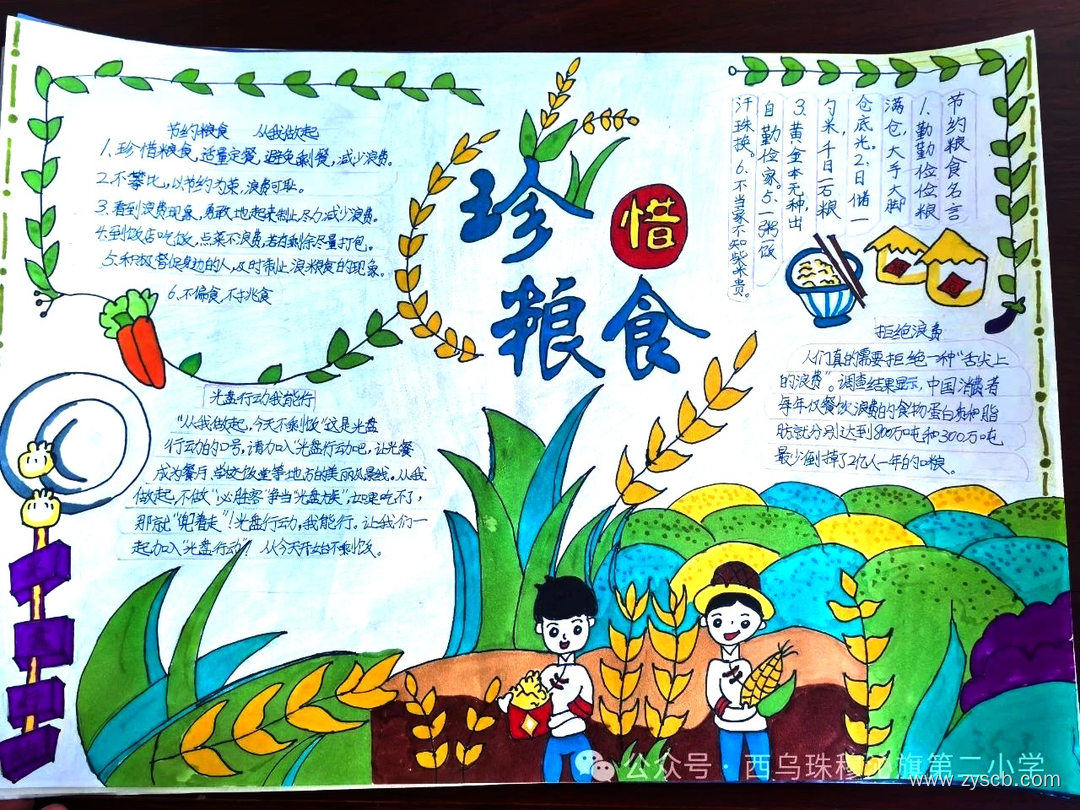 珍惜
粮食
节约粮食 从我做起
1.珍惜粮食,适量定餐,避免剩餐,减少浪费。
2.不攀比,以节约为荣,浪费可取。
3.看到浪费现象,勇敢地起来制止,尽力减少浪费。
4.到饭店吃饭,点菜不浪费,若有剩余尽量打包。
5.积极督促身边的人,及时制止浪粮食的现象。
6.不偏食,不挑食
节约粮食名言
1.勤勤俭俭粮
满仓,大手大脚
仓底光。2.日储一
勺米,千日一石粮
3.黄金本无种出
自勤俭家。5.一粥饭
汗珠换。6.不当家不知柴米贵。
光盘行动我能行
“从我做起,今天不剩饭”这是光盘
行动的口号,请加入“光盘行动吧,让光餐
成为餐厅、学校饭堂等地方的美丽风景线。从我
做起,不做“必胜客”争当光盘族”,如果吃不了,
那就“兜着走”!光盘行动,我能行。让我们一
起加入“光盘行动” 从今天开始不剩饭。
拒绝浪费
人们真的需要拒绝一种“舌尖上
的浪费”。调查结果显示,中国消费者
每年仅餐饮浪费的食物蛋白和脂
肪就分别达到800万吨和300万吨
最少倒掉了2亿人一年的口粮。
公众号·西乌珠穆沁旗第二小学
www.zyscb.com